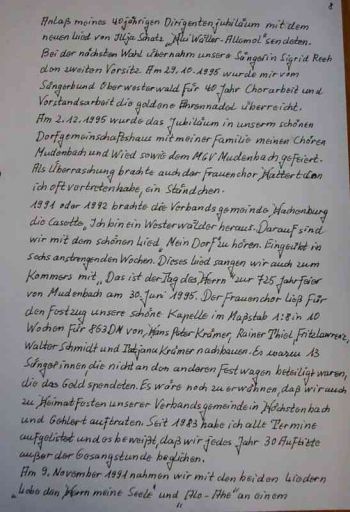 8
Anlaß meines 40jährigen Dirigentenjubiläum mit dem
neuen Lied von Ilja Schatz "Mui Waller-Allemol" sendeten.
Bei der nächsten Wahl übernahm unsere Sängerin Sigrid Reeh
den zweiten Vorsitz. Am 29.10.1995 wurde mir vom
Sängerbund Oberwesterwald für 40 Jahr Chorarbeit und
Vorstandsarbeit die goldene Ehrennadel überreicht.
Am 2.12.1995 wurde das Jubiläum in unserm schönen
Dorfgemeinschaftshaus mit meiner Familie meinen Chören
Mudenbach und Wied sowie dem MGV Mudenbach gefeiert.
Als Überraschung brachte auch der Frauenchor Hattert den
ich oft vertreten habe, ein Ständchen.
1991 oder 1992 brachte die Verbandsgemeinde Hachenburg
die Casette, Ich bin ein Westerwälder heraus. Darauf sind
wir mit dem schönen Lied "Mein Dorf" zu hören. Eingeübt in
sechs anstrengenden Wochen. Dieses Lied sangen wir auch zum
Kommers mit "Das ist der Tag des Herrn" zur 725 Jahrfeier
von Mudenbach am 30. Juni 1995. Der Frauenchor ließ für
den Festzug unsere schöne Kapelle im Maßstab 1:8 in 10
Wochen für 863 DM von, Hans Peter Krämer, Rainer Thiel, Fritz Lawrenz,
Walter Schmidt und Tatjana Krämer nachbauen. Es waren 13
Sängerinnen, die nicht an den anderen Festwagen beteiligt waren,
die das Geld spendeten. Es wäre noch zu erwähnen, daß wir auch
zu Heimatfesten unserer Verbandsgemeinde in Höchstenbach
und Gehlert auftraten. Seit 1983 habe ich alle Termine
aufgelistet und es beweißt, daß wir jedes Jahr 30 Auftritte
außer der Gesangstunde beglichen.
Am 9. November 1991 nahmen wir mit den beiden Liedern
"Lobe den Herrn meine Seele" und "Alo-Ahe" an einem